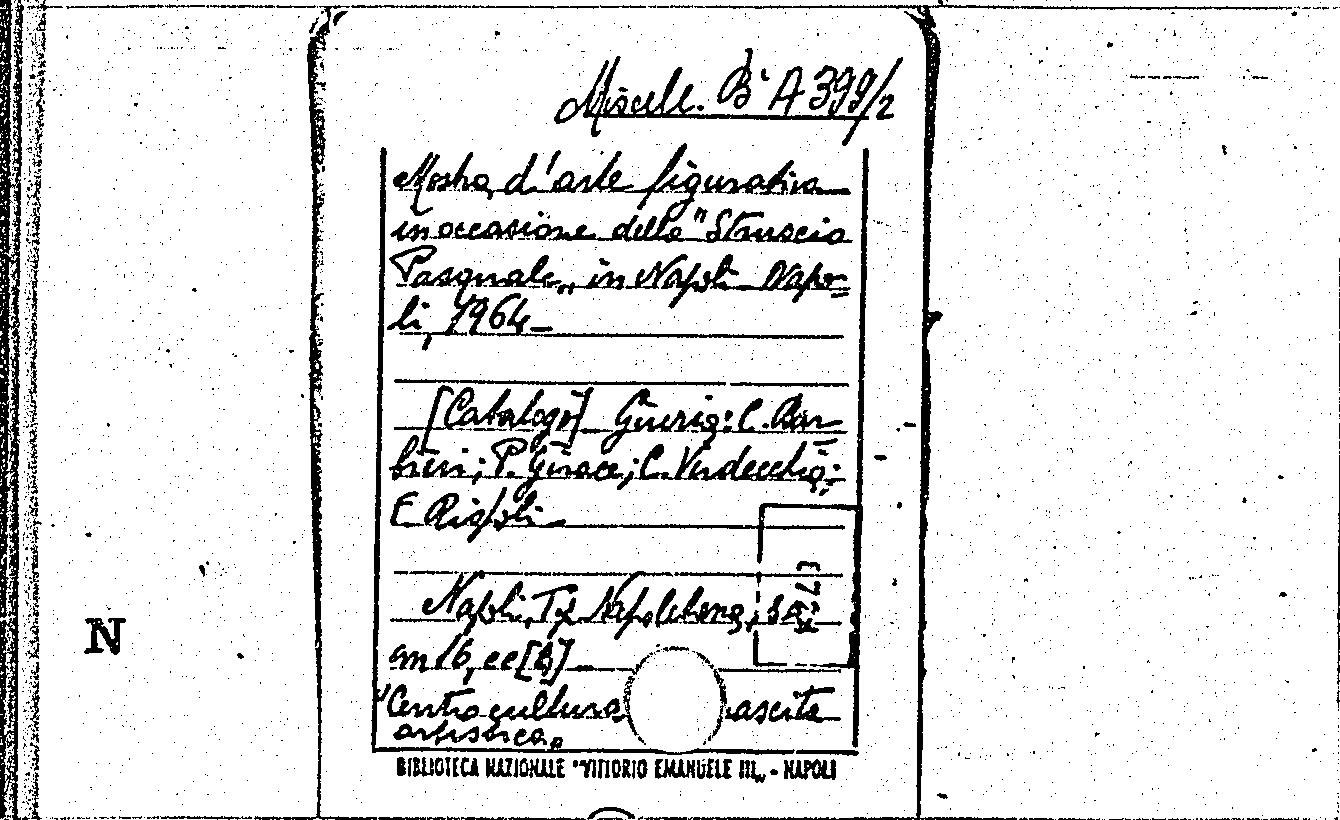 Miscell. Bª A 399/2
Mostra d'arte figurativa
in occasione dello "Struscio
Pasquale„ in Napoli - Napo=
li, 1964 -
[Catalogo] Giuria: C. Bar=
bieri; P. Girace; C. Verdecchia;
E Rispoli
Napoli, Tip. Napoletana,
in 16, cc [4]
"Centro cultura ascita
artistica„
N
BIBLIOTECA NAZIONALE "VITTORIO EMANUELE III„ - NAPOLI